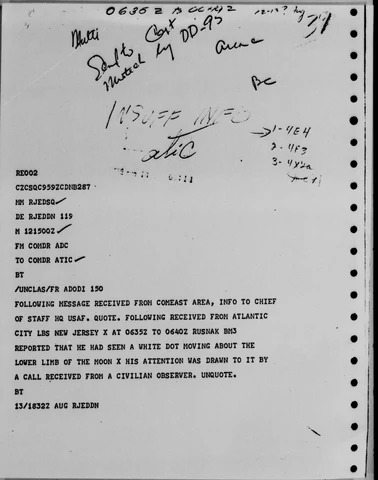 0635 Z
Sent to
by DD-93
INSUFF INFO
atic
1-4E4
2-4F3
3-4X2a
RE002
CZCSQC959ZCDNB287
MM RJEDSQ
DE RJEDDN 119
M 121500Z
FM COMDR ADC
TO COMDR ATIC
BT
/UNCLAS/FR ADODI 150
FOLLOWING MESSAGE RECEIVED FROM COMEAST AREA, INFO TO CHIEF
OF STAFF HQ USAF. QUOTE. FOLLOWING RECEIVED FROM ATLANTIC
CITY LBS NEW JERSEY X AT 0635Z TO 0640Z RUSNAK BM3
REPORTED THAT HE HAD SEEN A WHITE DOT MOVING ABOUT THE
LOWER LIMB OF THE MOON X HIS ATTENTION WAS DRAWN TO IT BY
A CALL RECEIVED FROM A CIVILIAN OBSERVER. UNQUOTE.
BT
13/1832Z AUG RJEDDN